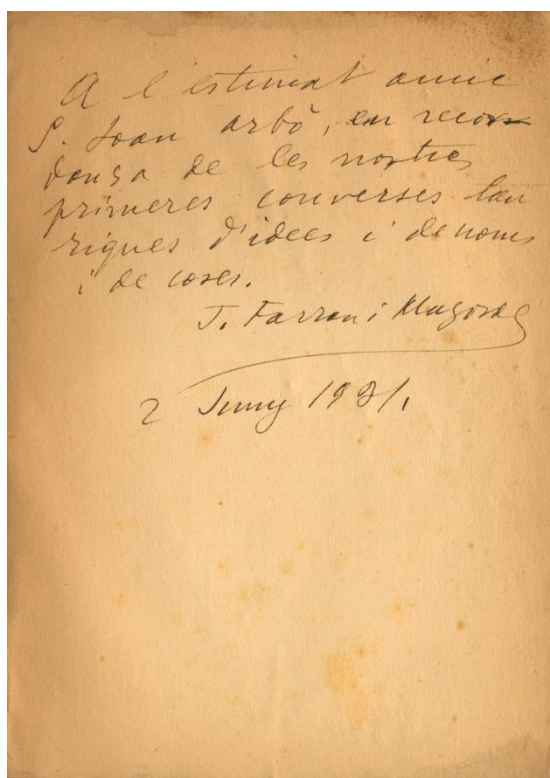 A l'estimat amic
S. Joan Arbó, en recor-
dansa de les nostres
primeres converses tan
riques d'idees i de noms
i de coses.
J. Farran i Mayoral
2 Juny 1931.